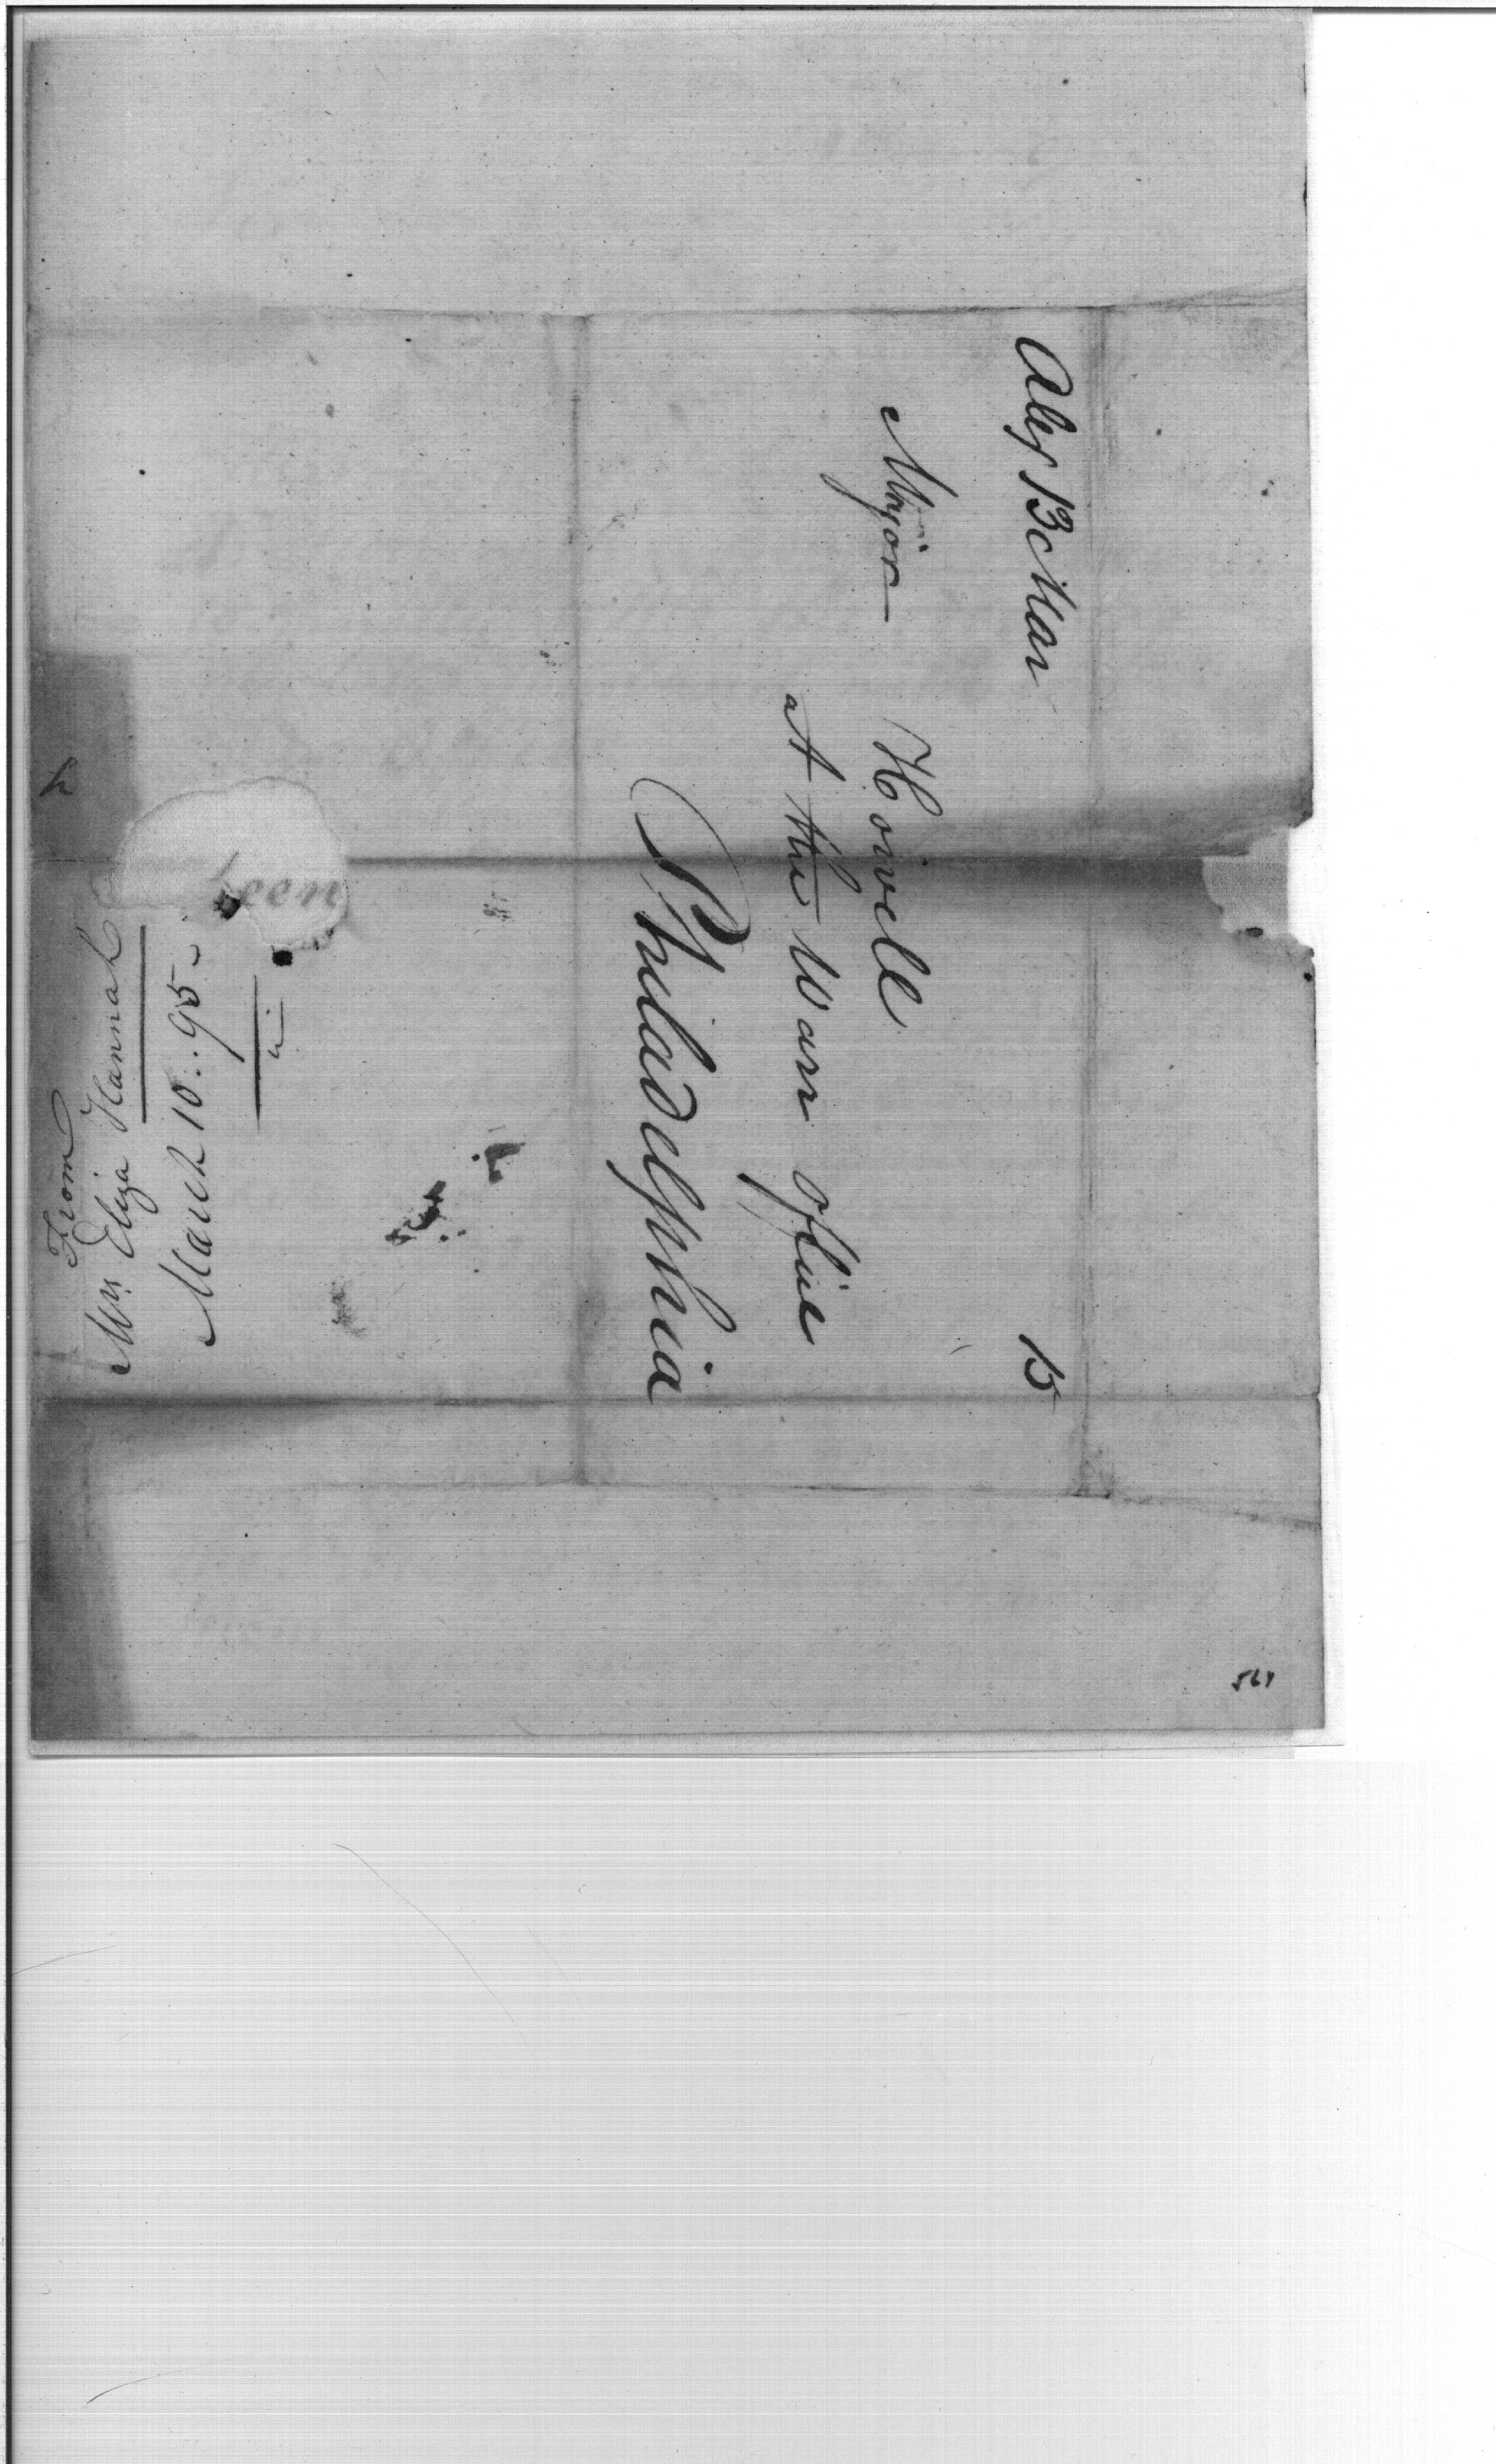 Alex 13 Mar 15
Major Howell
at the Warr office
Philadelphia
From
Mrs. Eliza Hannah
March 10. 95.
564